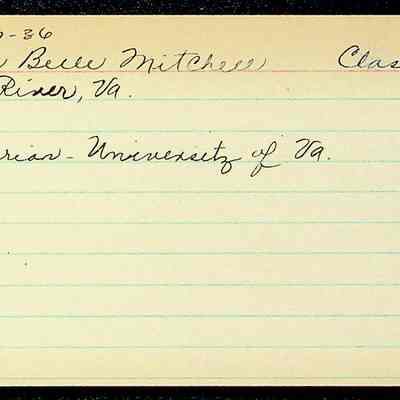 -36
Belle Mitchell Clas
River, Va.
rian - University of Va.